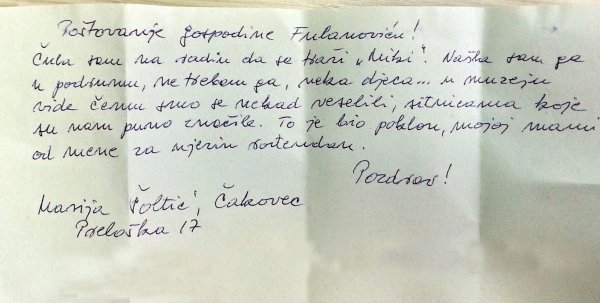 Poštovanje gospodine Fulanoviću!
Čula sam na radiu da se traži „Miki". Našla sam ga
u podrumu, ne trebam ga, neka djeca... u muzeju
vide čemu smo se nekad veselili, sitnicama koje
su nam puno značile. To je bio poklon, mojoj mami
od mene za njezin rođendan.
Pozdrav!
Marija Šoltić, Čakovec
Preloška 17